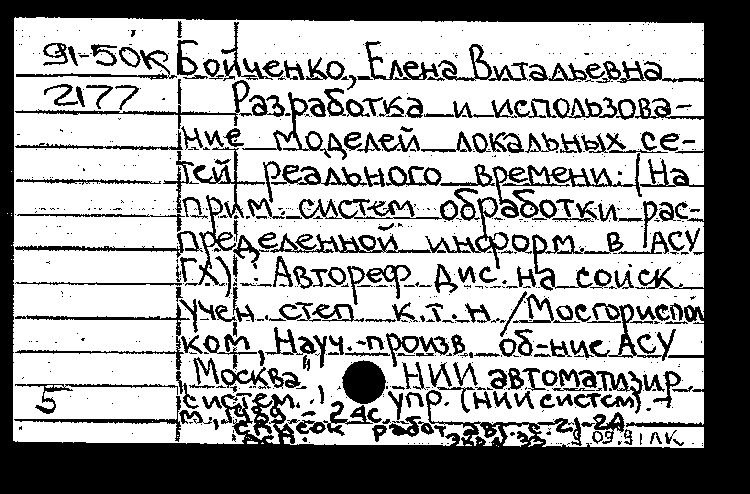 91-50к Бойченко, Елена Витальевна
2177 Разработка и использова-
ние моделей локальных се-
тей реального времени: (На
прим. систем обработки рас-
пределенной информ. в АСУ
ГХ) : Автореф. дис. на соиск.
учен. степ к.т.н. /Мосгориспол
ком, Науч.-произв. об-ние АСУ
"Москва", НИИ автоматизир.
5 систем. упр. (НИИ систем). -
М., 1989. - 24с.
список работ авт. с. 21-24
9.09.91 ЛК